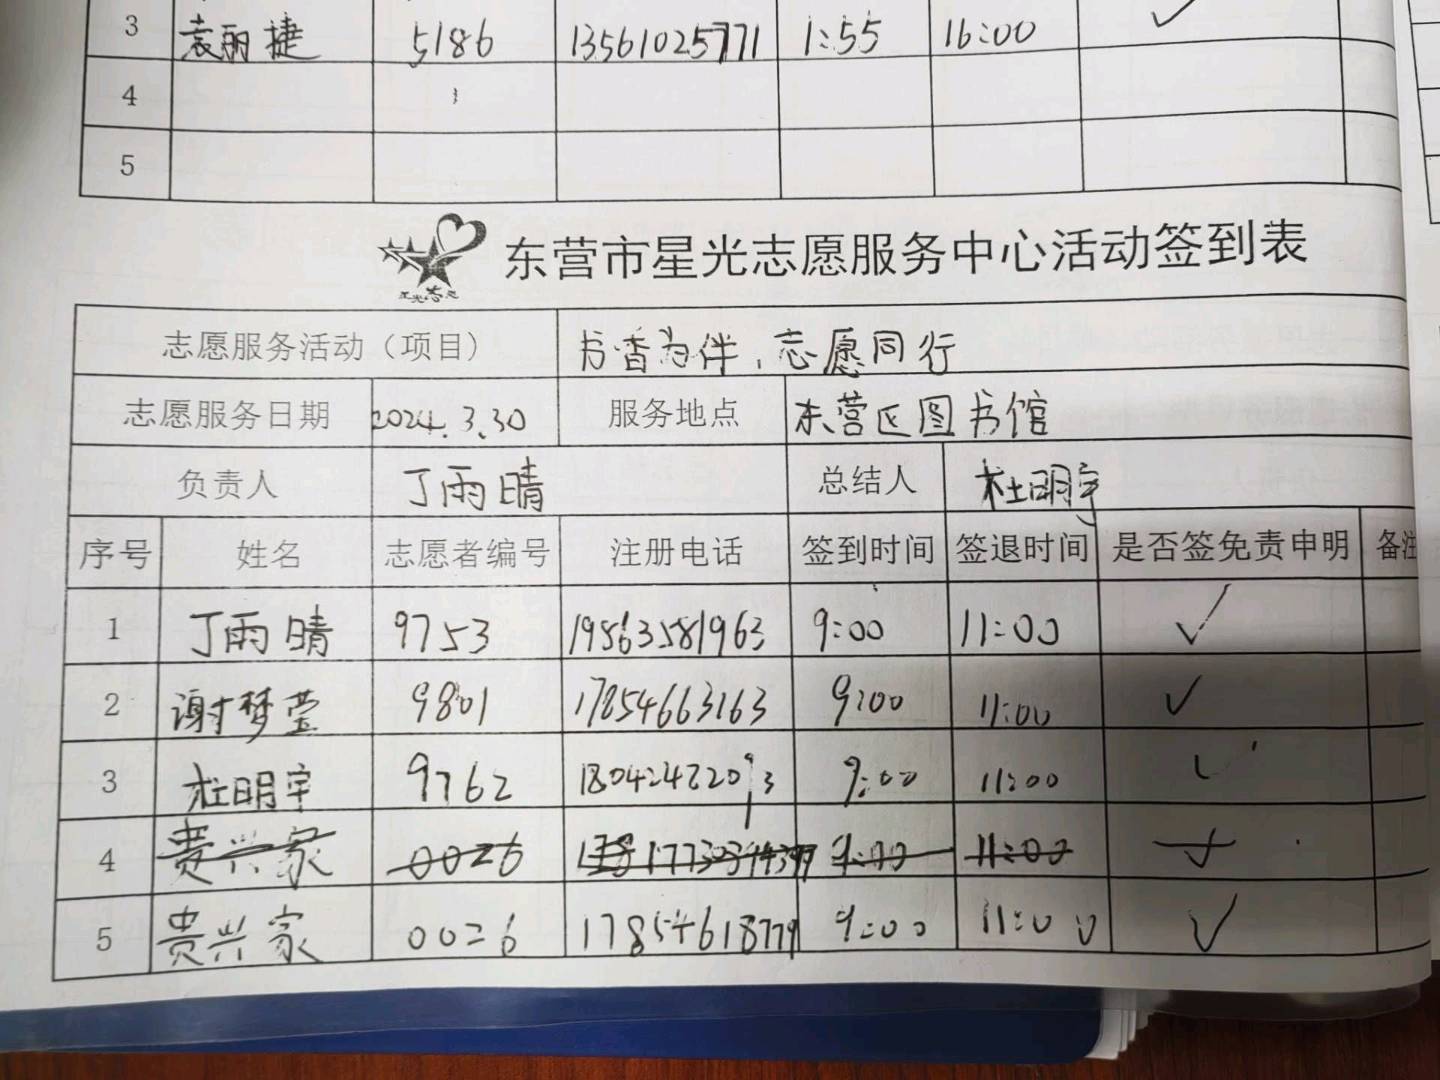 3 袁丽捷 5186 13561025771 1:55 16:00 ✓
4
5
星光志愿
东营市星光志愿服务中心活动签到表
志愿服务活动（项目） 书香为伴，志愿同行
志愿服务日期 2024.3.30 服务地点 东营区图书馆
负责人 丁雨晴 总结人 杜明宇
序号 姓名 志愿者编号 注册电话 签到时间 签退时间 是否签免责申明 备注
1 丁雨晴 9753 19563581963 9:00 11:00 ✓
2 谢梦莹 9801 17854663163 9:00 11:00 ✓
3 杜明宇 9762 9:00 11:00 ✓
4 贵兴家 0026 9:00 11:00 ✓
5 贵兴家 0026 17854618779 9:00 11:00 ✓